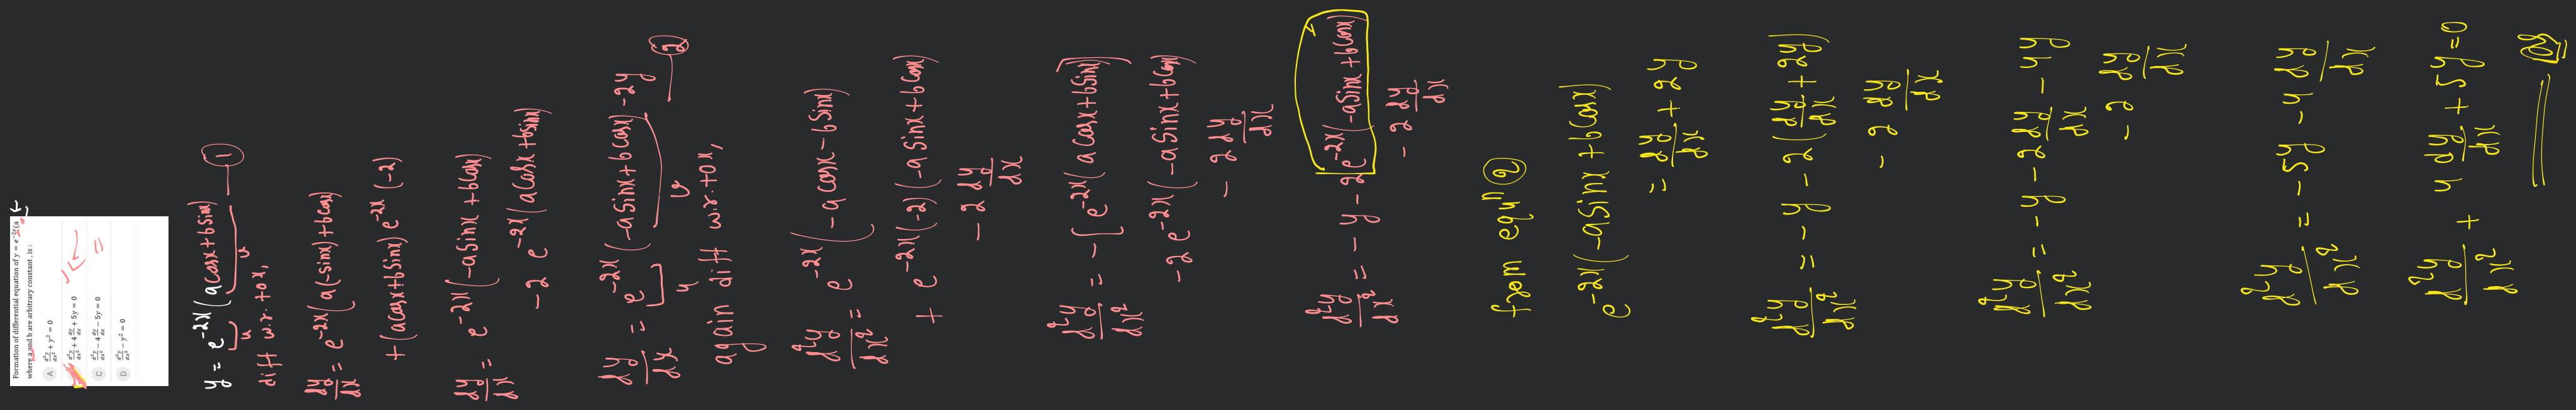 Formation of differential equation of y = e^{-2x}(a
where a and b are arbitrary constant, is :
A d²y/dx² + y² = 0
d²y/dx² + 4 dy/dx + 5y = 0
C d²y/dx² - 4 dy/dx - 5y = 0
D d²y/dx² - y² = 0
y = e^{-2x} (a cosx + b sinx) — ①
u v
diff w.r.to x,
dy/dx = e^{-2x} (a(-sinx) + b cosx)
+ (a cosx + b sinx) e^{-2x} (-2)
dy/dx = e^{-2x} (-a sinx + b cosx)
- 2 e^{-2x} (a cosx + b sinx)
dy/dx = e^{-2x} (-a sinx + b cosx) - 2y — ②
u v
again diff w.r.to x,
d²y/dx² = e^{-2x} (-a cosx - b sinx)
+ e^{-2x} (-2) (-a sinx + b cosx)
- 2 dy/dx
d²y/dx² = - [e^{-2x} (a cosx + b sinx)]
- 2 e^{-2x} (-a sinx + b cosx)
- 2 dy/dx
d²y/dx² = - y - 2 e^{-2x} (-a sinx + b cosx)
- 2 dy/dx
from eqn ②
e^{-2x} (-a sinx + b cosx)
= dy/dx + 2y
d²y/dx² = - y - 2 (dy/dx + 2y)
- 2 dy/dx
d²y/dx² = - y - 2 dy/dx - 4y
- 2 dy/dx
d²y/dx² = - 5y - 4 dy/dx
d²y/dx² + 4 dy/dx + 5y = 0